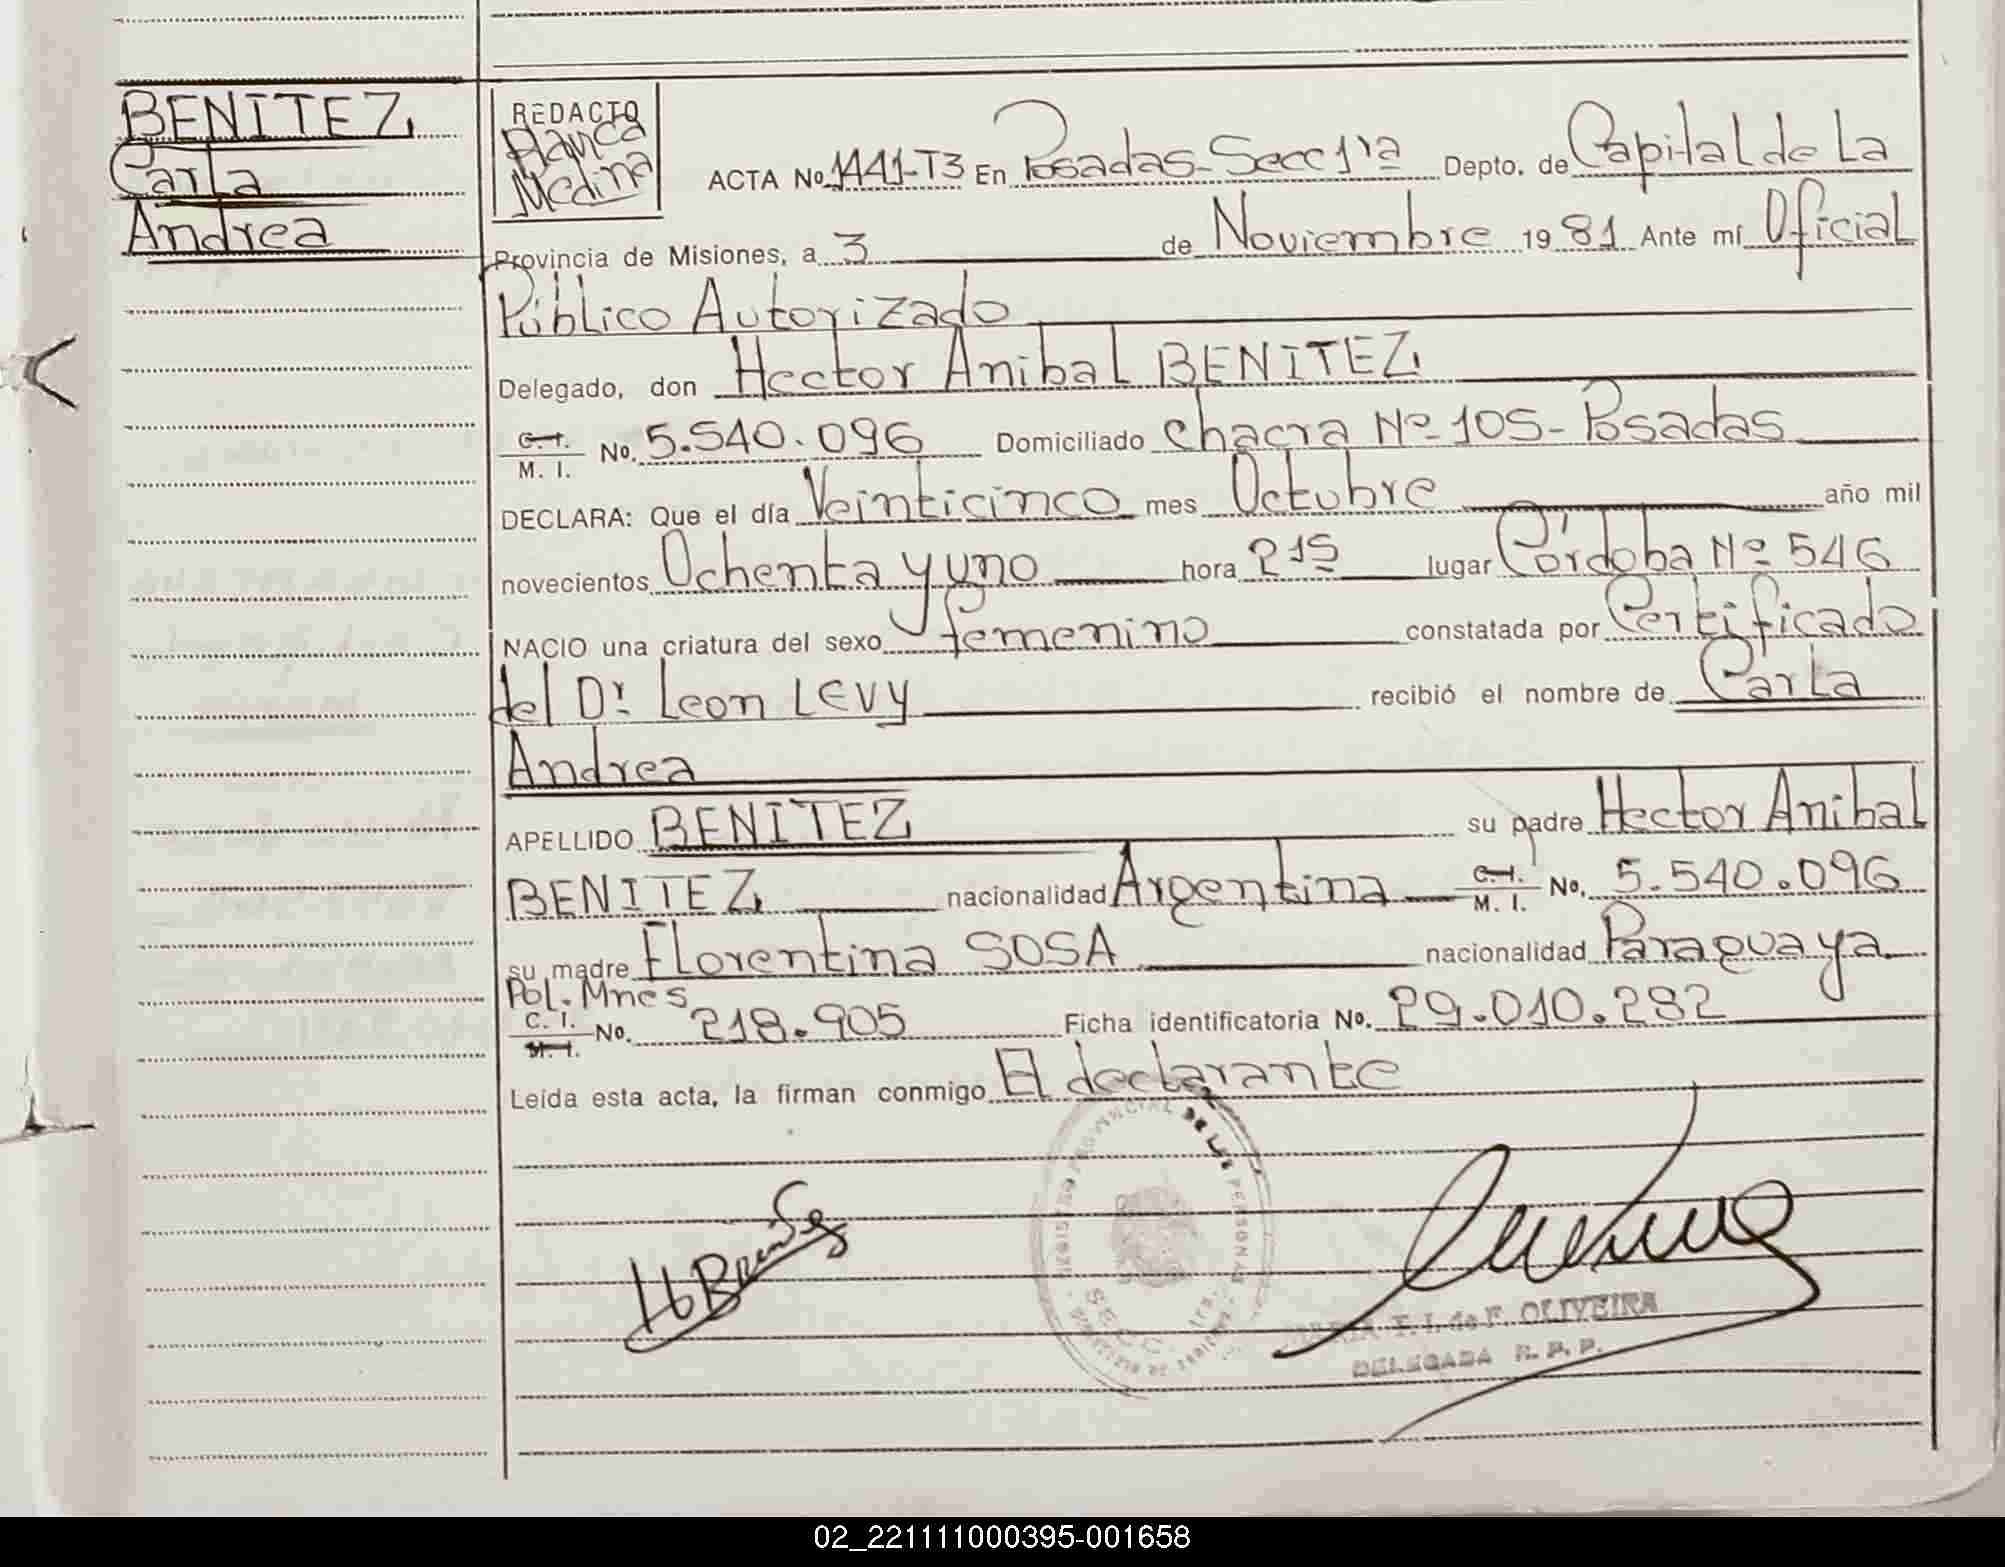 BENITEZ
Carla
Andrea
REDACTO
Blanca
Medina
ACTA No. 1441-T3 En Posadas-Secc 1ra Depto. de Capital de La
Provincia de Misiones, a 3 de Noviembre 1981 Ante mí Oficial
Público Autorizado
Delegado, don Hector Anibal BENITEZ
C. I.
M. I. No. 5.540.096 Domiciliado chacra Nº 105- Posadas
DECLARA: Que el día Veinticinco mes Octubre año mil
novecientos Ochenta y uno hora 215 lugar Córdoba Nº 546
NACIO una criatura del sexo femenino constatada por Certificado
del Dr. Leon LEVY recibió el nombre de Carla
Andrea
APELLIDO BENITEZ su padre Hector Anibal
BENITEZ nacionalidad Argentina C. I. M. I. No. 5.540.096
su madre Florentina SOSA nacionalidad Paraguaya
Pol. Mnes
C. I. M. I. No. 218.905 Ficha identificatoria No. 29.010.282
Leída esta acta, la firman conmigo El declarante
REGISTRO PROVINCIAL DE LAS PERSONAS
SECC. 1ra.
HBenitez
T. I. de F. OLIVEIRA
DELEGADA R. P. P.
02_221111000395-001658